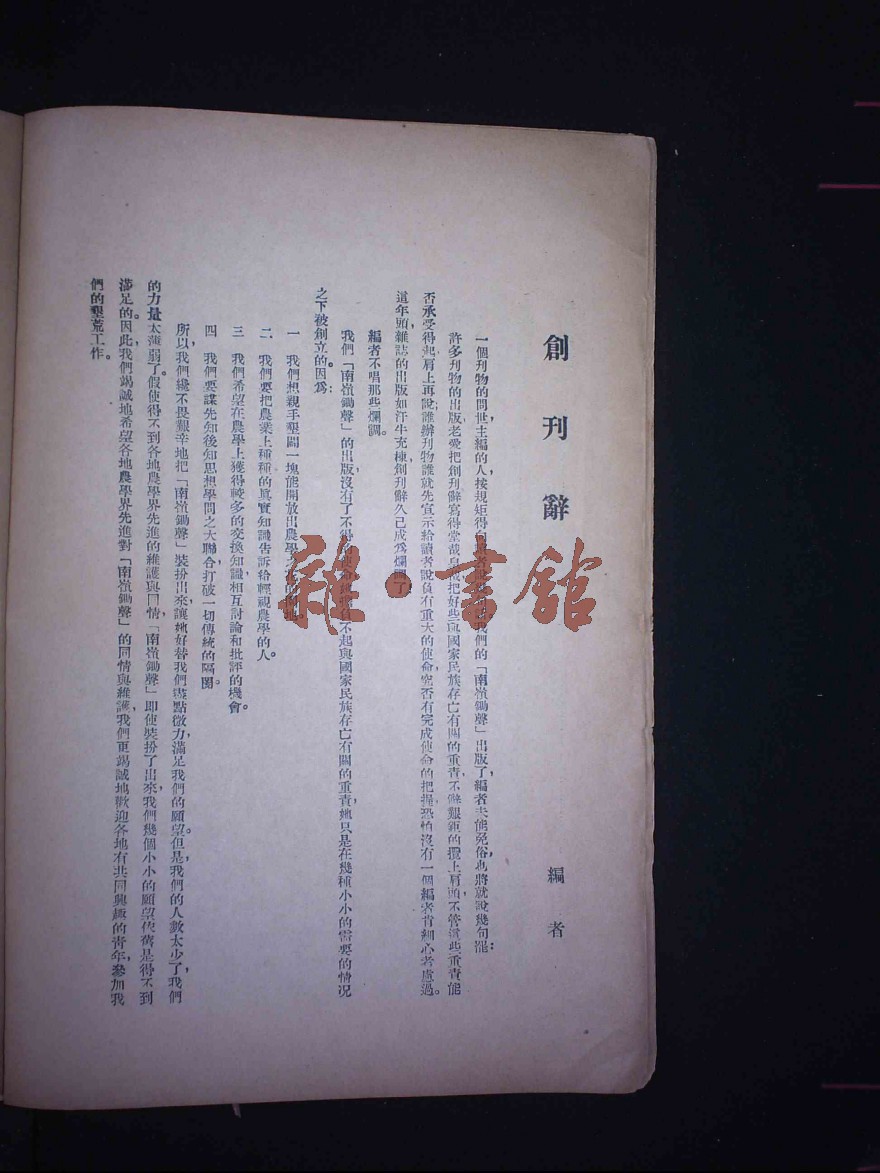 創刊辭
編者
一個刊物的問世主編的人按規矩得向讀者說幾句我們的「南嶺鋤聲」出版了編者未能免俗也將就說幾句罷：
許多刊物的出版老愛把創刊辭寫得堂哉皇哉把好些與國家民族存亡有關的重責不辭艱鉅的攬上肩頭不管這些重責能
否承受得起肩上再說誰辦刊物誰就先宣示給讀者說負有重大的使命究否有完成使命的把握恐怕沒有一個編者肯細心考慮過。
這年頭雜誌的出版如汗牛充棟創刊辭久已成爲爛調了，
編者不唱那些爛調。
我們「南嶺鋤聲」的出版沒有了不得的使命她擔負不起與國家民族存亡有關的重責她只是在幾種小小的需要的情況
之下被創立的。因爲：
一　我們想親手墾闢一塊能開放出農學之
二　我們要把農業上種種的眞實知識告訴給輕視農學的人。
三　我們希望在農學上獲得較多的交換知識相互討論和批評的機會。
四　我們要謀先知後知思想學問之大聯合打破一切傳統的隔閡。
所以我們纔不畏艱辛地把「南嶺鋤聲」裝扮出來讓她好替我們盡點微力，滿足我們的願望。但是我們的人數太少了，我們
的力量太薄弱了。假使得不到各地農學界先進的維護與同情，「南嶺鋤聲」即使裝扮了出來，我們幾個小小的願望依舊是得不到
滿足的。因此，我們竭誠地希望各地農學界先進對「南嶺鋤聲」的同情與維護，我們更竭誠地歡迎各地有共同興趣的青年，參加我
們的墾荒工作。
雜·書館